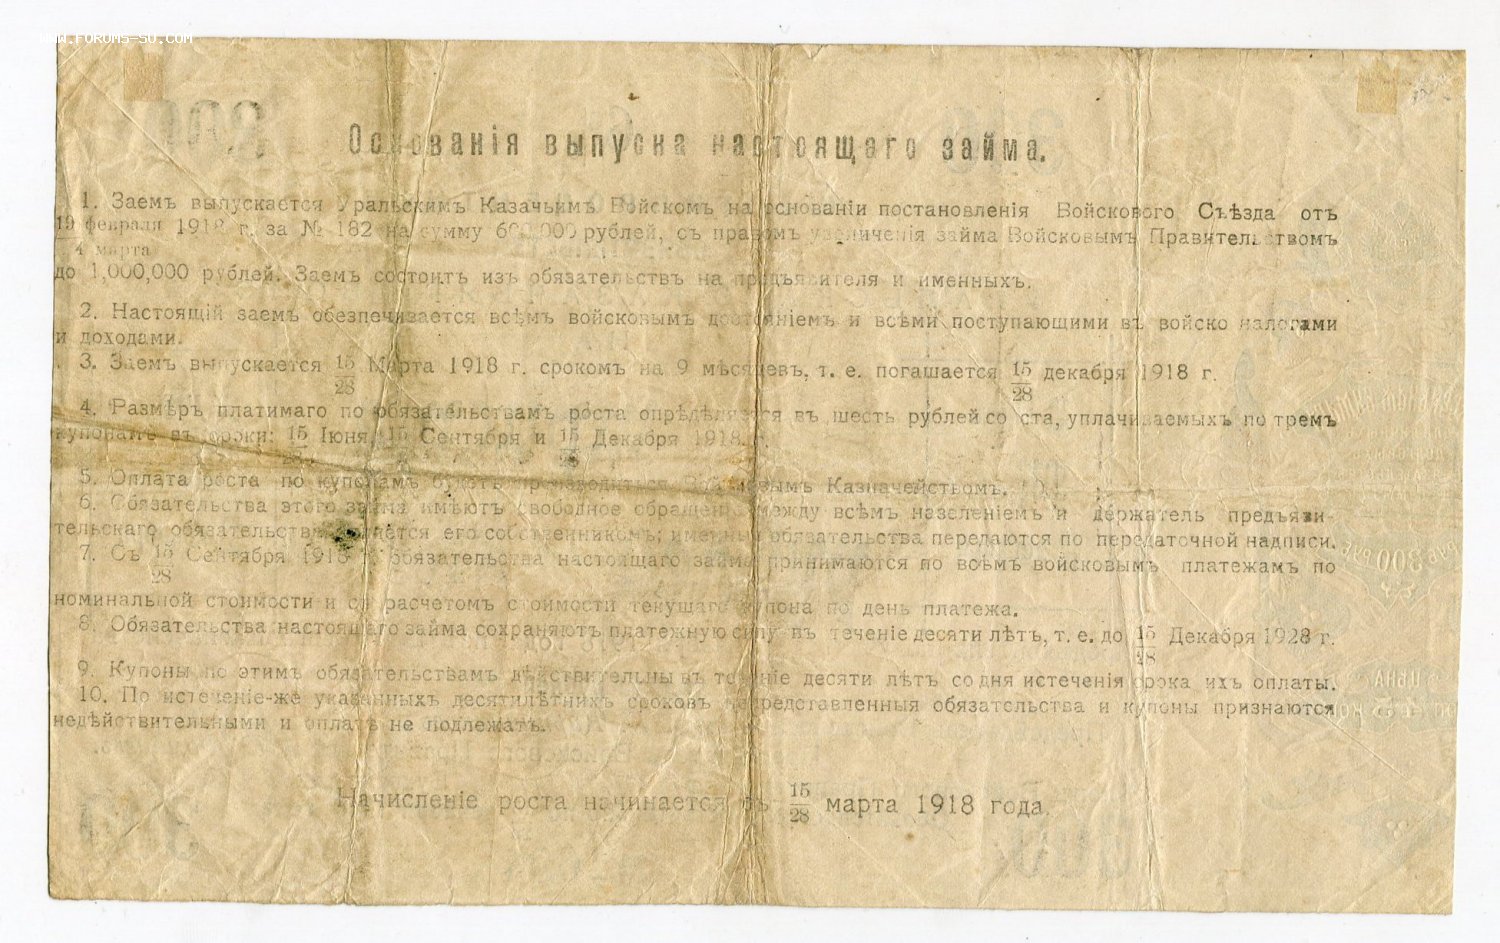 WWW.FORUMS-SU.COM
Основанія выпуска настоящаго займа.
1. Заемъ выпускается Уральскимъ Казачьимъ Войскомъ на основаніи постановленія Войскового Съѣзда отъ
19 февраля 1918 г. за № 182 на сумму 600,000 рублей, съ правомъ увеличенія займа Войсковымъ Правительством
4 марта
до 1,000,000 рублей. Заемъ состоитъ изъ обязательствъ на предъявителя и именныхъ.
2. Настоящій заемъ обезпечивается всѣмъ войсковымъ достояніемъ и всѣми поступающими въ войско налогами
и доходами.
3. Заемъ выпускается 15/28 Марта 1918 г. срокомъ на 9 мѣсяцевъ, т. е. погашается 15/28 декабря 1918 г.
4. Размѣръ платимаго по обязательствамъ роста опредѣляется въ шесть рублей со ста, уплачиваемыхъ по тремъ
купонамъ въ сроки: 15 Іюня, 15 Сентября и 15/28 Декабря 1918 г.
5. Оплата роста по купонамъ будетъ производиться Войсковымъ Казначействомъ.
6. Обязательства этого займа имѣютъ свободное обращеніе между всѣмъ населеніемъ и держатель предъяви-
тельскаго обязательства является его собственникомъ; именныя обязательства передаются по передаточной надписи.
7. Съ 15/28 Сентября 1918 г. обязательства настоящаго займа принимаются по всѣмъ войсковымъ платежамъ по
номинальной стоимости и съ расчетомъ стоимости текущаго купона по день платежа.
8. Обязательства настоящаго займа сохраняютъ платежную силу въ теченіе десяти лѣтъ, т. е. до 15/28 Декабря 1928 г.
9. Купоны по этимъ обязательствамъ дѣйствительны въ теченіе десяти лѣтъ со дня истеченія срока ихъ оплаты.
10. По истеченіе-же указанныхъ десятилѣтнихъ сроковъ непредставленныя обязательства и купоны признаются
недѣйствительными и оплатѣ не подлежатъ.
Начисленіе роста начинается съ 15/28 марта 1918 года.